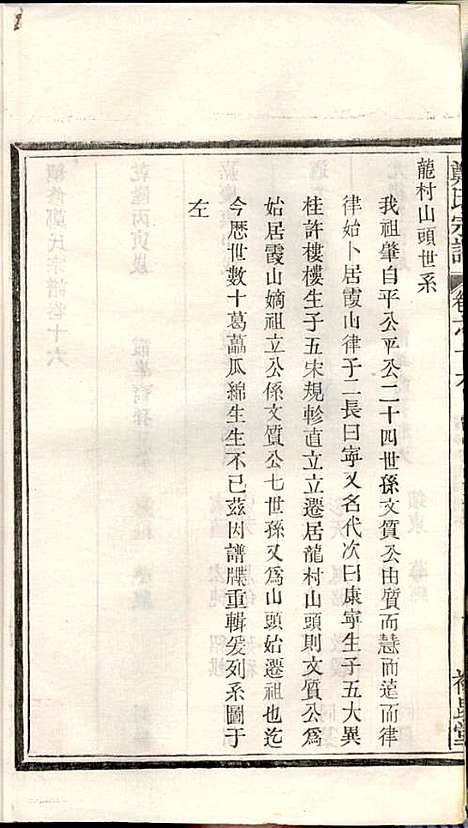 鄭氏宗譜
龍村山頭世系
我祖肇自平公平公二十四世孫文質公由質而慧而遠而律
律始卜居霞山律子二長曰寧又名代次曰康寧生子五大異
桂許樓樓生子五宋規軫直立立遷居龍村山頭則文質公爲
始居霞山嫡祖立公係文質公七世孫又爲山頭始遷祖也迄
今歷世數十葛藟瓜綿生生不已茲因譜牒重輯爰列系圖于
左